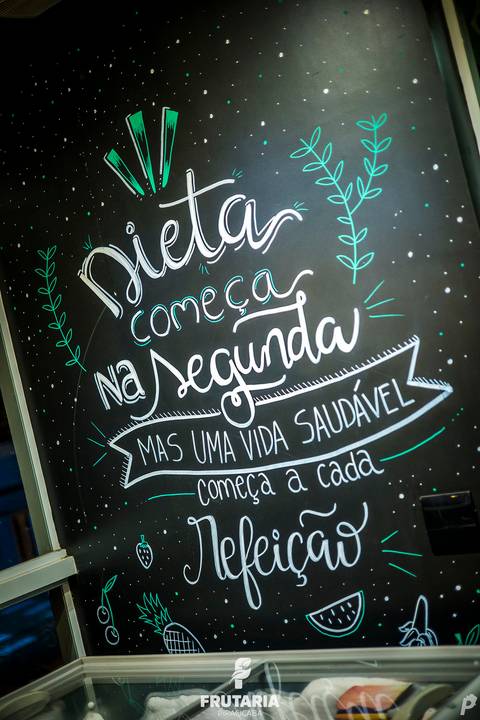 Dieta
começa
na segunda
MAS UMA VIDA SAUDÁVEL
começa a cada
Refeição
FRUTARIA
PIRACICABA